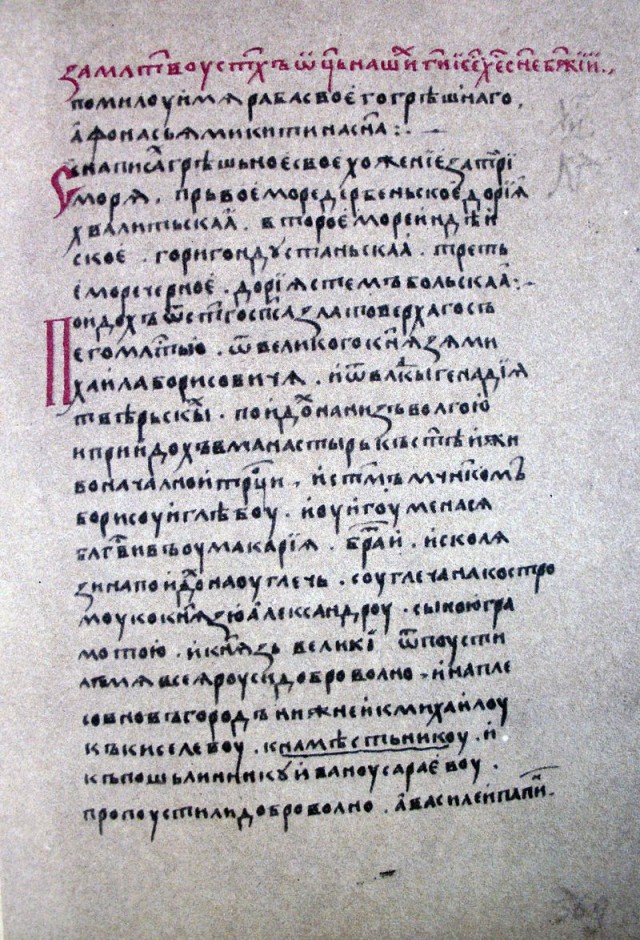 за млтвоу стхъ ѿць нашй ги ісе хе сне бжій.,
помилоуи мя раба своєго грѣшнаго,
афонасья микитина сна :. —
Се написа грѣшьноє своє хоженїє за три
моря . прьвоє море дербеньскоє дорія
хвалитьскаа . второє море индѣй
скоє . горигондустаньскаа . треть
є море черноє . дорія стемъбольскаа :. -
Поидохъ ѿ стго спса златоверхаго съ
єго млтью . ѿ великого княза ми
хаила борисовичя . и ѿ влкы генадїа
твѣрьскы . поидо на низъ волгою
и приидохъ в манастырь къ стѣй жи
воначалной трци . и стмъ мчнкомъ
борисоу и глѣбоу . и оу игоуменася
блгвивъ оу макарїя . братіи . ис коля
зина поидо на оуглечь . с оуглеча на костро
моу ко князю александроу . сыною гра
мотою . и князь великі ѿпоусти
лъ мя всея роуси доброволно . и на пле
со в новъгородъ нижней к михаилоу
къ киселевоу . к намѣстьникоу . и
къ пошьлиннику иваноу сараєвоу .
пропоустили доброволно . а василеи папи -
369